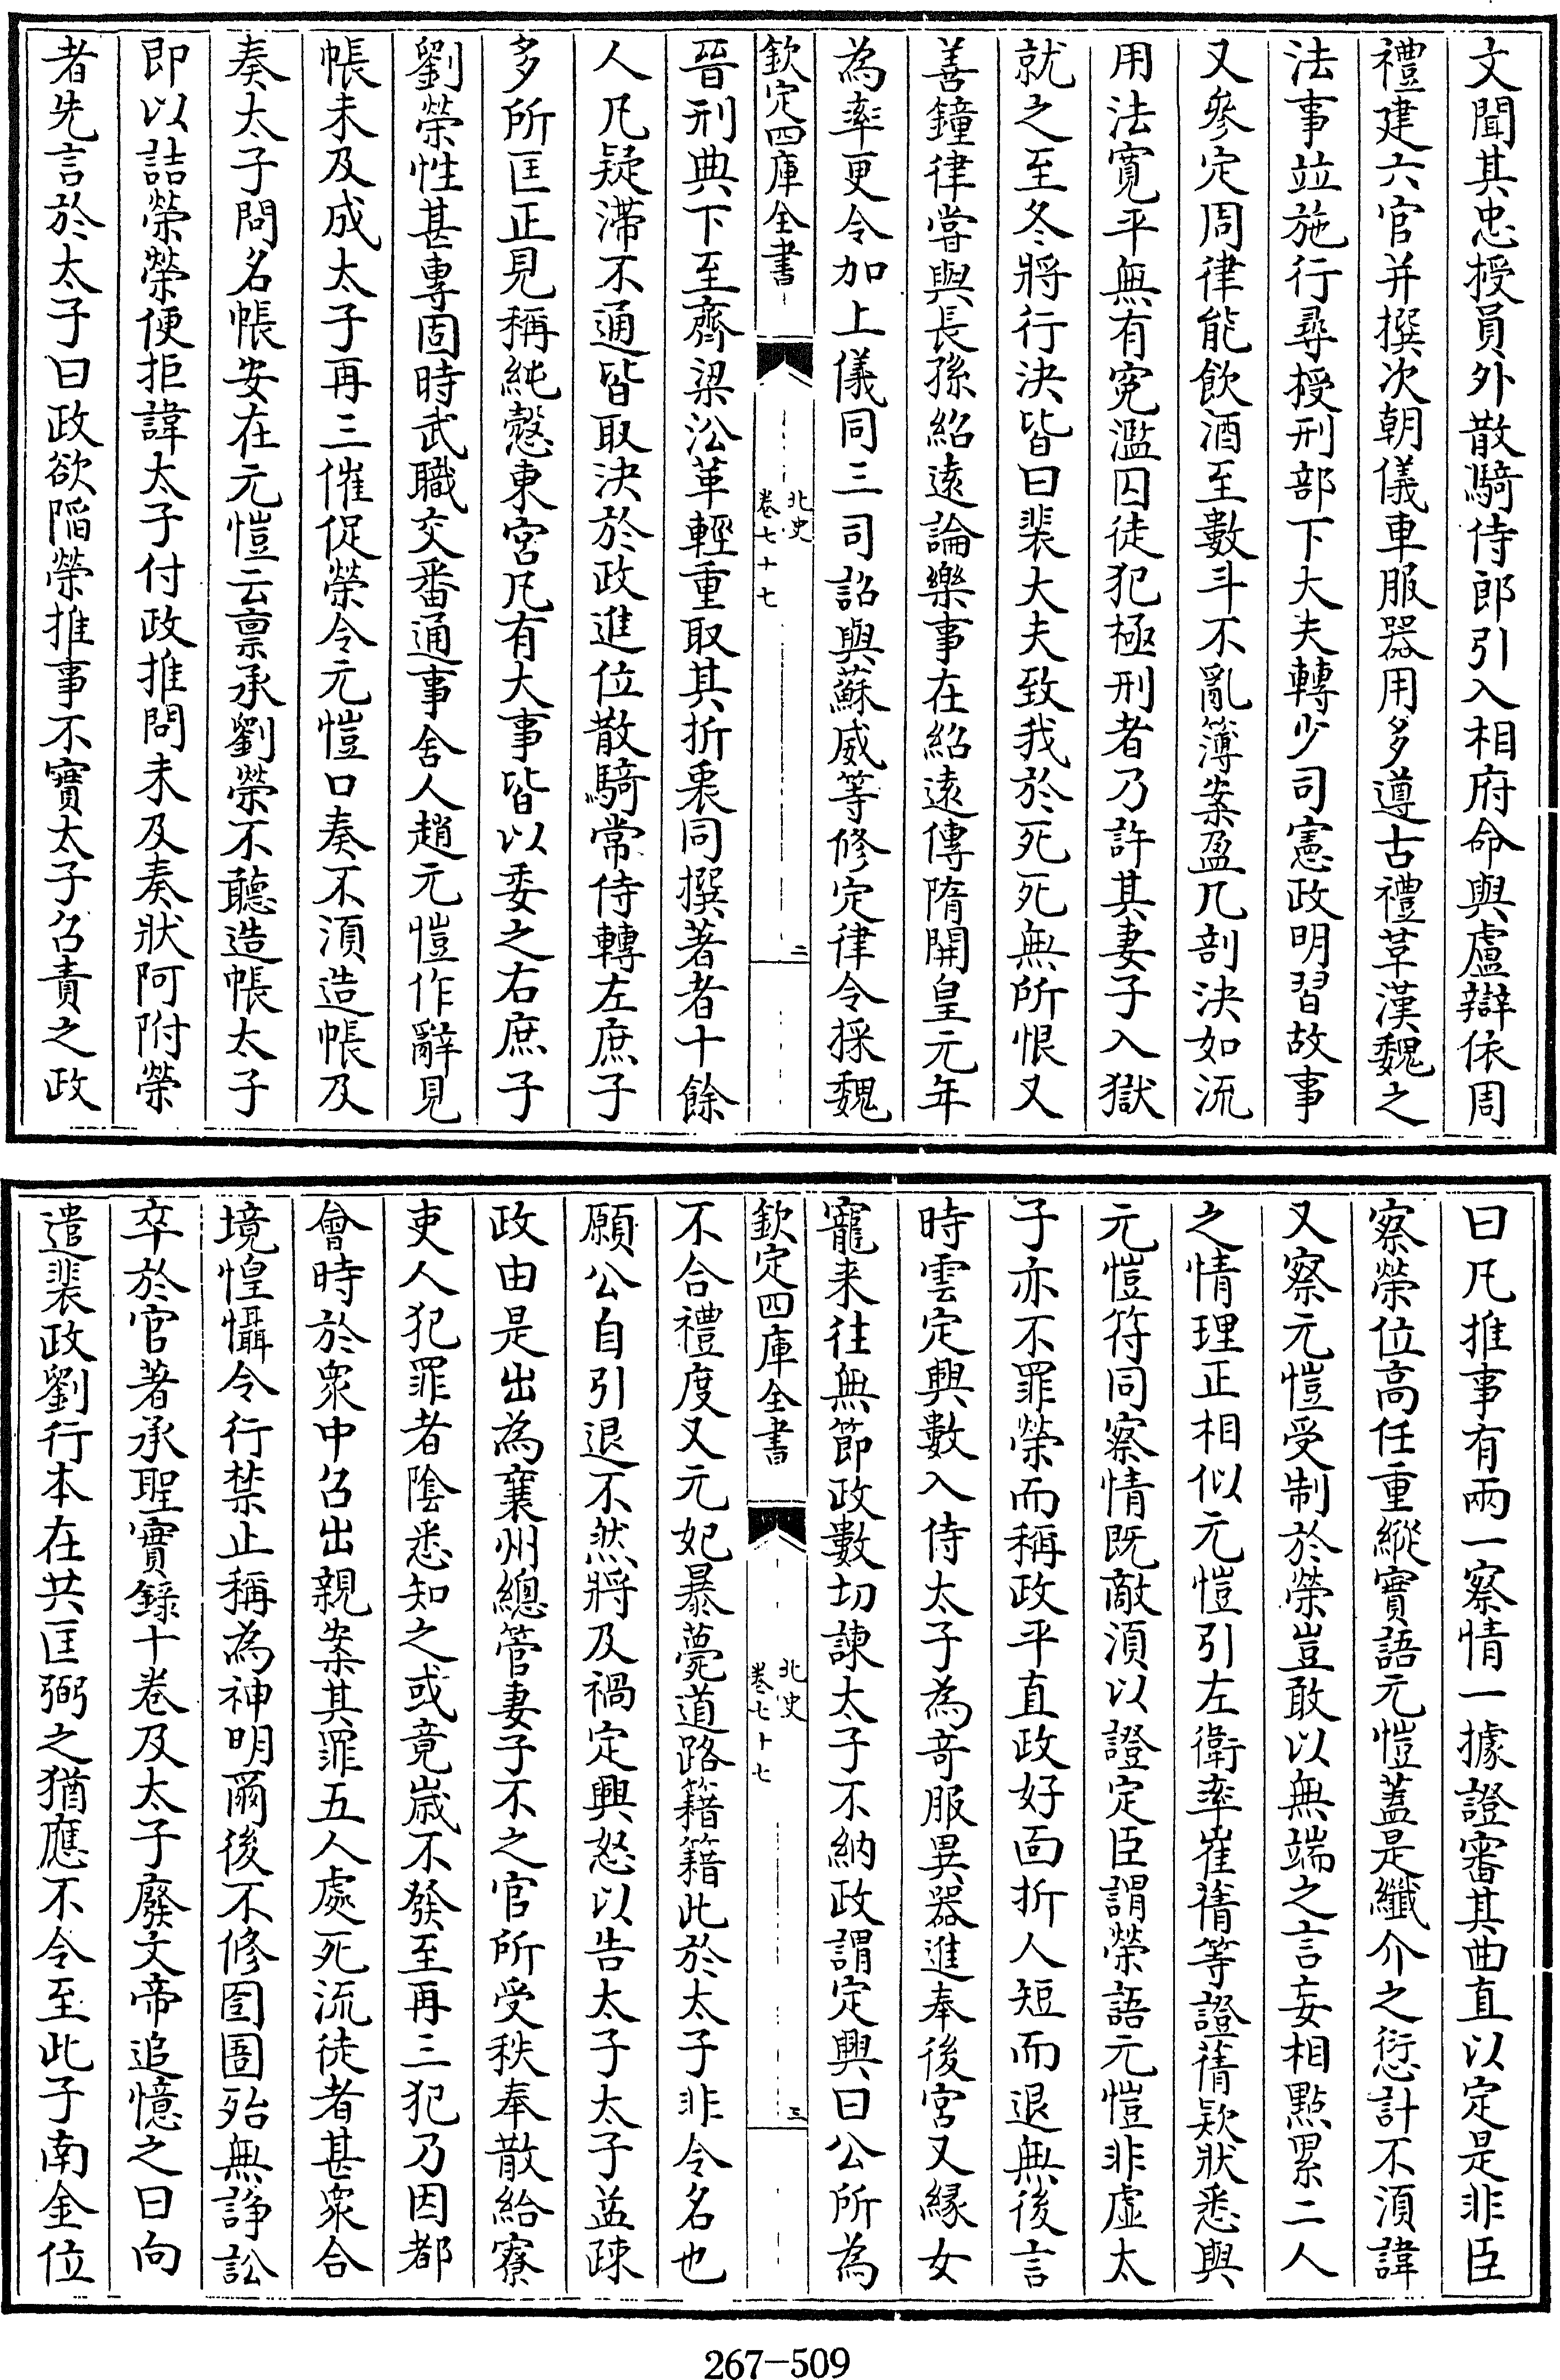 文聞其忠授員外散騎侍郎引入相府命與盧辯依周
禮建六官并撰次朝儀車服器用多遵古禮革漢魏之
法事竝施行尋授刑部下大夫轉少司憲政明習故事
又參定周律能飲酒至數斗不亂簿案盈几剖決如流
用法寛平無有寃濫囚徒犯極刑者乃許其妻子入獄
就之至冬將行決皆曰裴大夫致我於死死無所恨又
善鐘律嘗與長孫紹遠論樂事在紹遠傳隋開皇元年
為率更令加上儀同三司詔與蘇威等修定律令採魏
欽定四庫全書
北史
卷七十七
二
晉刑典下至齊梁㳂革輕重取其折衷同撰著者十餘
人凡疑滯不通皆取決於政進位散騎常侍轉左庶子
多所匡正見稱純慤東宮凡有大事皆以委之右庶子
劉榮性甚專固時武職交番通事舍人趙元愷作辭見
帳未及成太子再三催促榮令元愷口奏不湏造帳及
奏太子問名帳安在元愷云禀承劉榮不聽造帳太子
即以詰榮榮便拒諱太子付政推問未及奏狀阿附榮
者先言於太子曰政欲陷榮推事不實太子召責之政
曰凡推事有兩一察情一據證審其曲直以定是非臣
察榮位高任重縱實語元愷蓋是纖介之愆計不湏諱
又察元愷受制於榮豈敢以無端之言妄相點累二人
之情理正相似元愷引左衛率崔蒨等證蒨欵狀悉與
元愷符同察情既敵湏以證定臣謂榮語元愷非虛太
子亦不罪榮而稱政平直政好面折人短而退無後言
時雲定興數入侍太子為竒服異器進奉後宮又緣女
寵来往無節政數切諫太子不納政謂定興曰公所為
欽定四庫全書
北史
卷七十七
三
不合禮度又元妃暴薨道路籍籍此於太子非令名也
願公自引退不然將及禍定興怒以告太子太子益疎
政由是出為襄州總管妻子不之官所受秩奉散給寮
吏人犯罪者隂悉知之或竟嵗不發至再三犯乃因都
會時於衆中召出親案其罪五人處死流徒者甚衆合
境惶懾令行禁止稱為神明爾後不修囹圄殆無諍訟
卒於官著承聖實錄十卷及太子廢文帝追憶之曰向
遣裴政劉行本在共匡弼之猶應不令至此子南金位
267-509